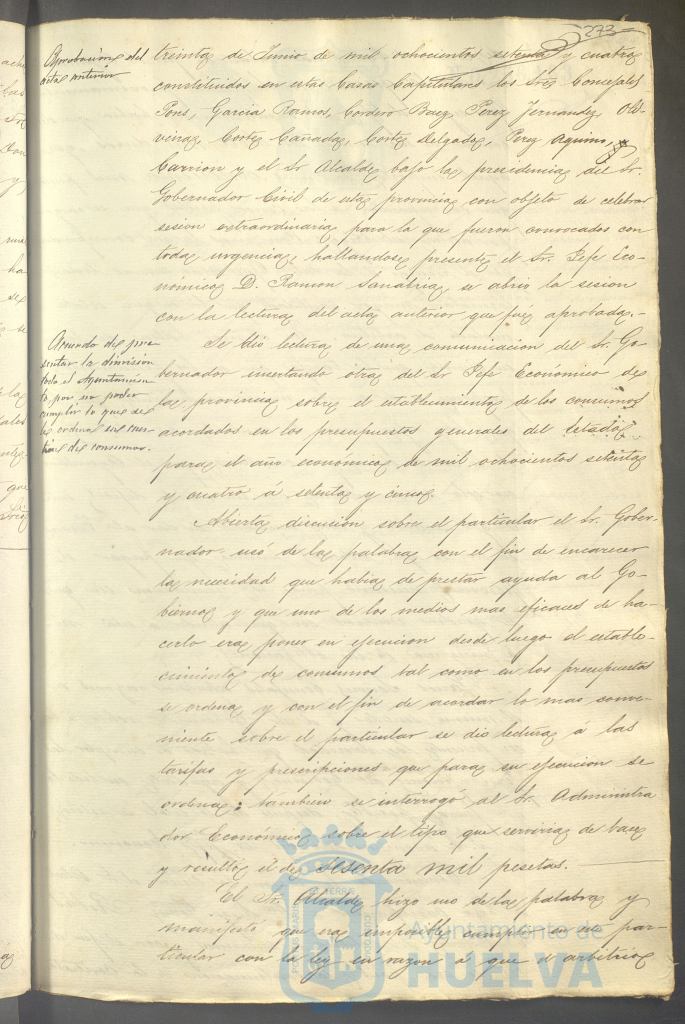 273
Aprobacion del
acta anterior
treinta de Junio de mil ochocientos setenta y cuatro
constituidos en estas Casas Capitulares los Sres Concejales
Pons, Garcia Ramos, Cordero Baez, Perez Fernandez, Oli-
veira, Cortes Cañada, Cortes Delgado, Perez Aquino, y
Carrion y el Sr Alcalde bajo la presidencia del Sr.
Gobernador Civil de esta provincia con objeto de celebrar
sesion extraordinaria para la que fueron convocados con
toda urgencia, hallandose presente el Sr. Jefe Eco-
nómico D. Ramon Sanabria, se abrio la sesion
con la lectura del acta anterior que fué aprobada.
Acuerdo de pre-
sentar la dimision
todo el Ayuntamien-
to por no poder
cumplir lo que se
le ordena en mate-
ria de consumos.
Se dió lectura de una comunicacion del Sr. Go-
bernador insertando otra del Sr Jefe Economico de
la provincia sobre el establecimiento de los consumos
acordados en los presupuestos generales del Estado
para el año económico de mil ochocientos setenta
y cuatro á setenta y cinco.
Abierta discusion sobre el particular el Sr. Gober-
nador usó de la palabra con el fin de encarecer
la necesidad que habia de prestar ayuda al Go-
bierno y que uno de los medios mas eficaces de ha-
cerlo era poner en ejecucion desde luego el estable-
cimiento de consumos tal como en los presupuestos
se ordena, y con el fin de acordar lo mas conve-
niente sobre el particular se dio lectura á las
tarifas y prescripciones que para su ejecucion se
ordena; tambien se interrogó al Sr. Administra
dor Económico sobre el tipo que serviria de base
y resultó el de sesenta mil pesetas.
El Sr. Alcalde hizo uso de la palabra y
manifestó que era imposible cumplir en este par-
ticular con la ley en razon á que el arbitrio
Ayuntamiento de
HUELVA